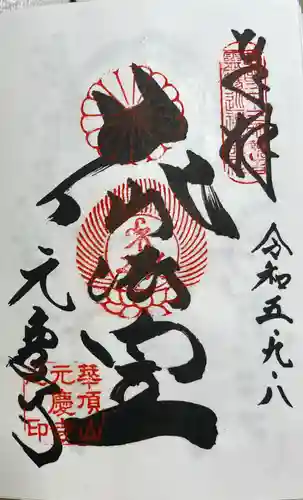 奉拝
令和五.九.八
花山法皇
元慶寺
華頂山
元慶寺
印